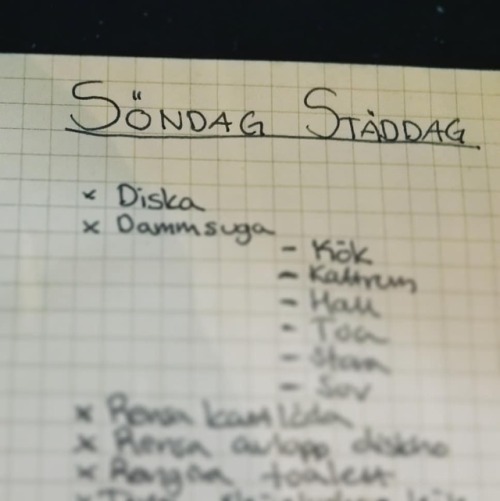 SÖNDAG STÄDDAG
x Diska
x Dammsuga
- Kök
- Kattrum
- Hall
- Toa
- Stora
- Sov
x Rensa kattlåda
x Rensa avlopp diskho
x Rengöra toalett